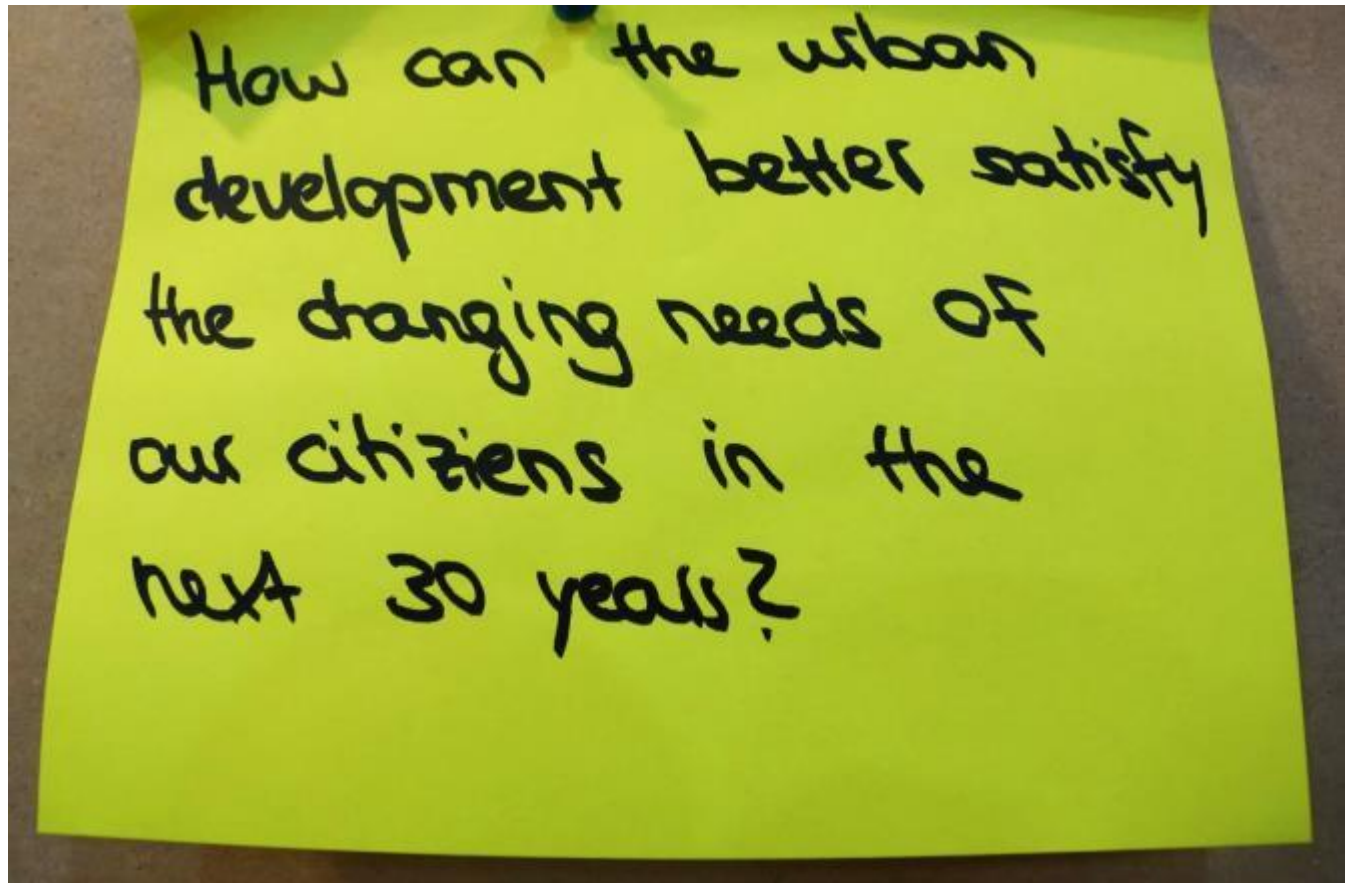 How can the urban
development better satisfy
the changing needs of
our citiziens in the
next 30 years?